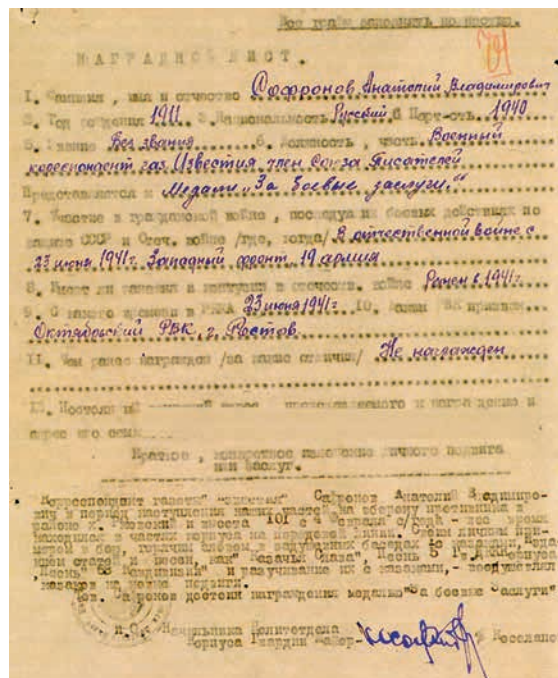 Все графы заполнять полностью.
НАГРАДНОЙ ЛИСТ.
1. Фамилия, имя и отчество Софронов Анатолий Владимирович
2. Год рождения 1911 3. Национальность Русский 4. Парт-сть 1940
5. Звание Без звания 6. Должность, часть Военный
корреспондент газ. Известия член Союза Писателей
Представляется к Медали „За боевые заслуги."
7. Участие в гражданской войне, последующих боевых действиях по
защите СССР и Отеч. войне /где, когда/ В отечественной войне с
23 июня 1941г. Западный фронт, 19 армия
8. Имеет ли ранения и контузии в отечеств. войне Ранен в 1941г
9. С какого времени в РККА 23 июня 1941г 10. Каким РВК призван
Октябрьский РВК, г. Ростов
11. Чем ранее награжден /за какие отличия/ Не награжден
12. Постоянный адрес представляемого к награждению и
адрес его семьи
Краткое, конкретное изложение личного подвига
или заслуг.
Корреспондент газеты "Известия" Софронов Анатолий Владимиро-
вич в период наступления наших частей на оборону противника в
районе х. и моста 101 с 4 февраля с/года - все время
находился в частях корпуса на передовой линии. Своим личным при-
мером в бою, горячим словом в задушевных беседах, созда-
нием стихов и песен, как "Казачья Слава", "Песнь 5 Гв. корпуса"
"Песнь и разучивание их с казаками, - воодушевлял
казаков на новые подвиги.
Тов. Софронов достоин награждения медалью "За боевые заслуги"
и.о. Начальника Политотдела
Корпуса Гвардии Майор-